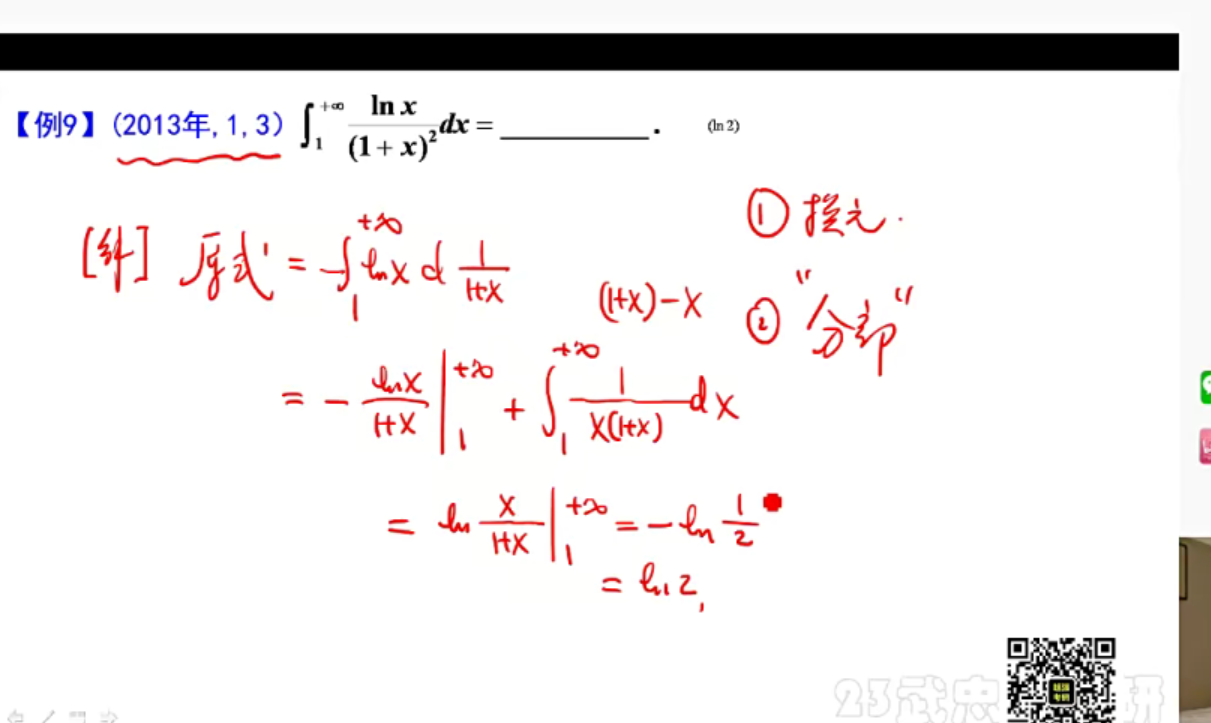 【例9】(2013年,1,3) ∫₁^{+∞} ln x / (1+x)² dx = ________. (ln 2)
① 换元.
[解] 原式 = -∫₁^{+∞} ln x d 1/(1+x)
(1+x)-x
② "分部"
= - ln x/(1+x) |₁^{+∞} + ∫₁^{+∞} 1/(x(1+x)) dx
= ln x/(1+x) |₁^{+∞} = -ln 1/2
= ln 2,
23武忠 研